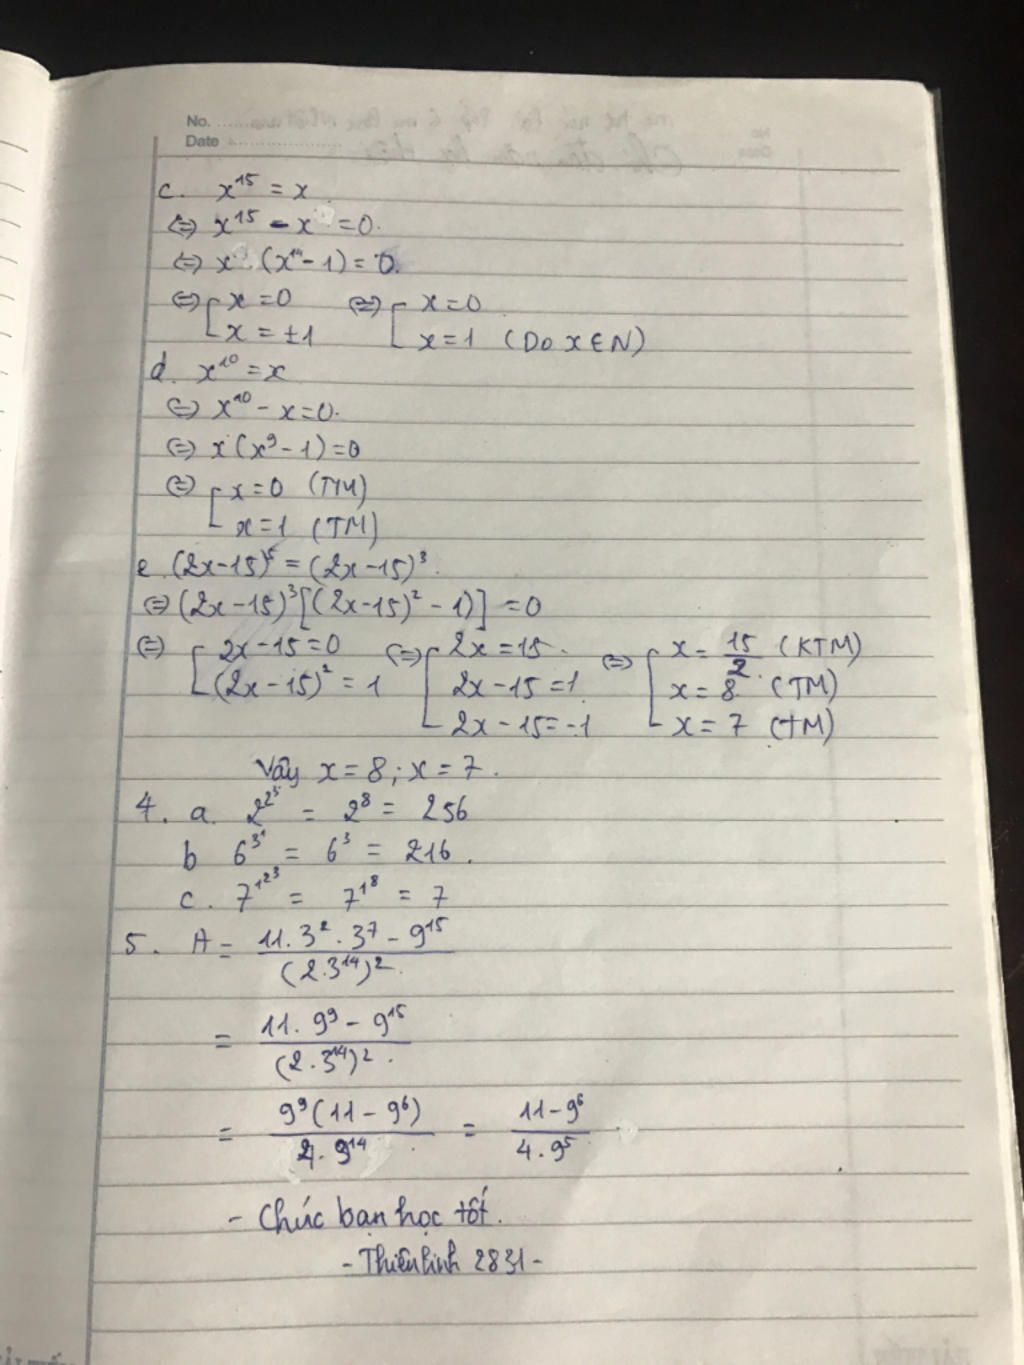 No.
Date
c. x¹⁵ = x
⇔ x¹⁵ - x = 0.
⇔ x (x¹⁴ - 1) = 0.
⇔ [ x = 0 ⇔ [ x = 0
x = ±1 x = 1 (Do x ∈ N)
d. x¹⁰ = x
⇔ x¹⁰ - x = 0.
⇔ x (x⁹ - 1) = 0
⇔ [ x = 0 (TM)
x = 1 (TM)
e. (2x-15)⁵ = (2x-15)³.
⇔ (2x-15)³ [(2x-15)² - 1)] = 0
⇔ [ 2x-15 = 0 ⇔ [ 2x = 15. ⇔ [ x = 15/2. (KTM)
(2x-15)² = 1 2x-15 = 1 x = 8 (TM)
2x-15 = -1 x = 7 (TM)
Vậy x = 8; x = 7.
4. a. = 2⁸ = 256
b 6^3^1 = 6³ = 216.
c. 7^1^2^3 = 7^1^8 = 7
5. A = (11.3².3⁷ - 9¹⁵)/(2.3¹⁴)².
= (11.9⁹ - 9¹⁵)/(2.3¹⁴)².
= 9⁹(11 - 9⁶)/4.9¹⁴ = (11 - 9⁶)/4.9⁵
- Chúc bạn học tốt.
- Thiên linh 2831 -